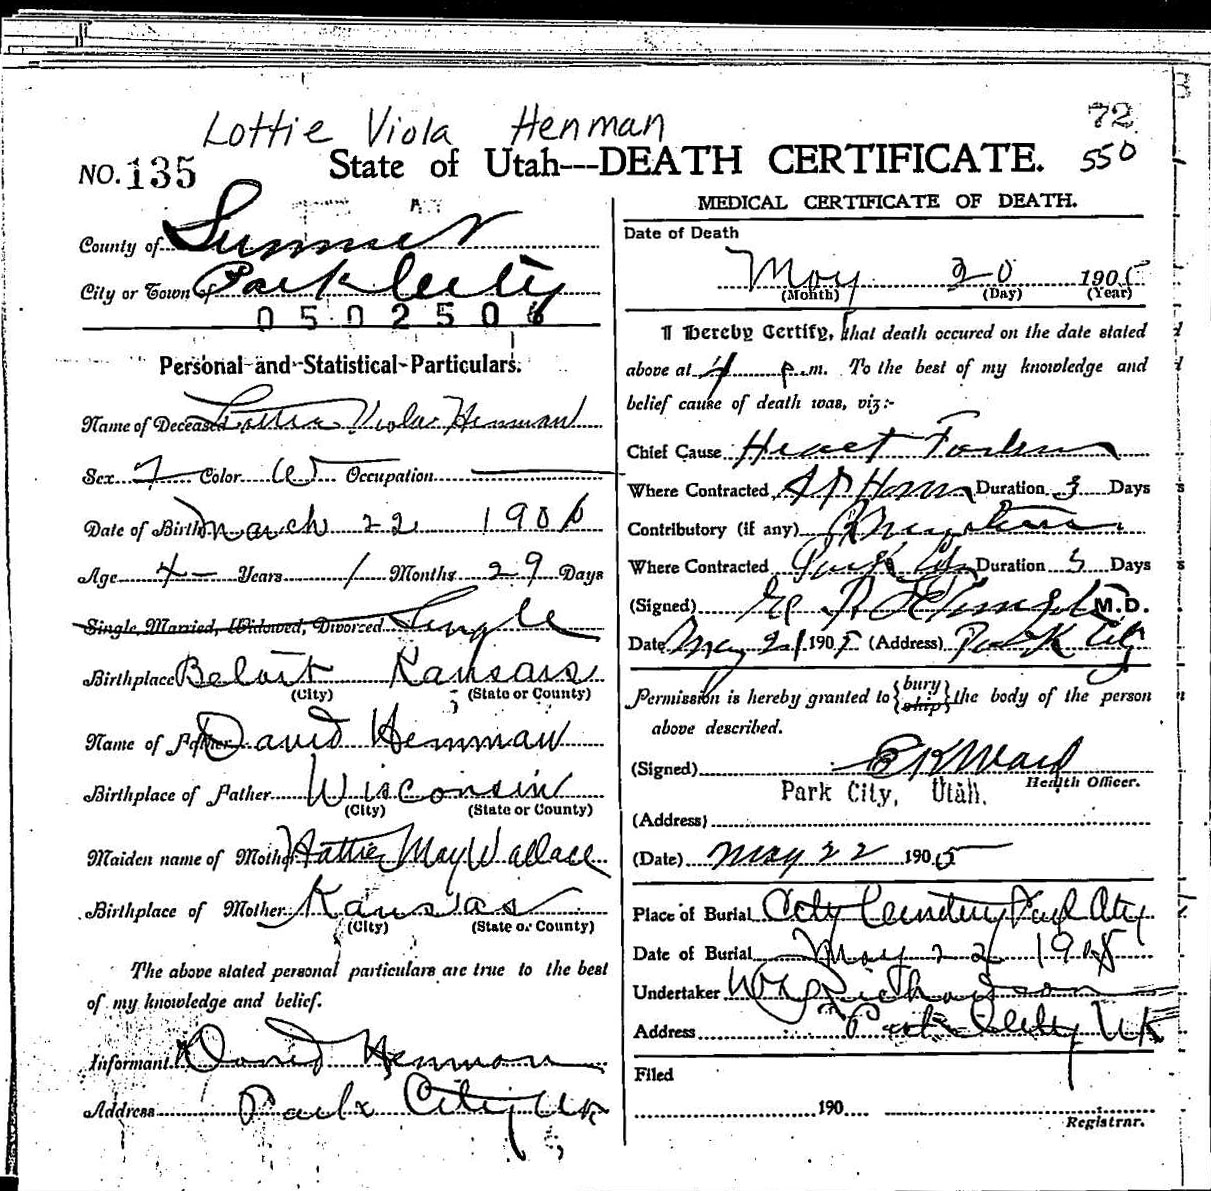 Lottie Viola Henman
72
550
NO. 135 State of Utah---DEATH CERTIFICATE.
County of Summit
City or Town of Park City
0502506
Personal and Statistical Particulars.
Name of Deceased Lottie Viola Henman
Sex F Color W Occupation
Date of Birth March 22 190
Age 4 Years 1 Months 29 Days
Single, Married, Widowed, Divorced Single
Birthplace Beloit Kansas
(City) (State or County)
Name of Father David Henman
Birthplace of Father Wisconsin
(City) (State or County)
Maiden name of Mother Hattie May Wallace
Birthplace of Mother Kansas
(City) (State or County)
The above stated personal particulars are true to the best
of my knowledge and belief.
Informant David Henman
Address Park City Ut
MEDICAL CERTIFICATE OF DEATH.
Date of Death
May 20 1905
(Month) (Day) (Year)
I Hereby Certify, that death occured on the date stated
above at 4 p.m. To the best of my knowledge and
belief cause of death was, viz:-
Chief Cause Heart
Where Contracted Duration 3 Days
Contributory (if any)
Where Contracted Park City Duration Days
(Signed) M.D.
Date May 21 1905 (Address) Park City
Permission is hereby granted to {bury ship} the body of the person
above described.
(Signed) Ward
Health Officer.
Park City, Utah.
(Address)
(Date) May 22 1905
Place of Burial City Cemetery Park City
Date of Burial May 22 1905
Undertaker Richardson
Address Park City Ut
Filed
190
Registrar.